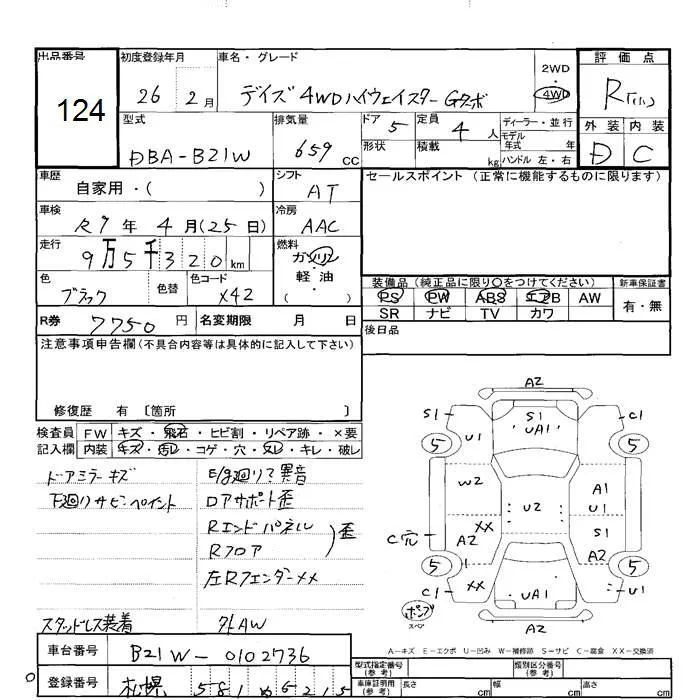 出品番号
124
初度登録年月
26 2月
車名・グレード
デイズ 4WDハイウェイスターGターボ
2WD
・
4WD
評価点
R
外装 内装
D C
型式
DBA-B21W
排気量
659 CC
ドア 5
定員 4 人
形状
積載 kg
ディーラー・並行
モデル年式 年
ハンドル 左・右
車歴
自家用・( )
シフト
AT
セールスポイント (正常に機能するものに限ります)
車検
R7年 4月(25日)
冷房
AAC
走行
9万5千320km
燃料
ガソリン
・
軽油
( ・ )
色
ブラック
色替
色コード
X42
装備品 (純正品に限り〇をつけてください)
新車保証書
PS PW ABS エアB AW
SR ナビ TV カワ
有・無
R券 7750 円
名変期限 月 日
後日品
注意事項申告欄(不具合内容等は具体的に記入して下さい)
修復歴 有 〔箇所 〕
検査員記入欄
FW キズ・飛石・ヒビ割・リペア跡・×要
内装 キズ・汚レ・コゲ・穴・スレ・キレ・破レ
ドアミラーキズ
下廻りサビ・ペイント
E/g廻り?異音
Dアサポート歪
Rエンドパネル
Rフロア
歪
左RフェンダーXX
スタッドレス装着
外AW
A2
S1 S1 C1
UA1
5 U1 5
W2 A1
U2 U1
XX S1
C穴 A2 A2
5 5
C1 XX UA1 U1
ポンプ
スペア
A2
A-キズ E-エクボ U-凹み W-補修跡 S-サビ C-腐食 XX-交換済
車台番号
B21W-0102736
登録番号
札幌 581 め 6215
型式指定番号(参考)
類別区分番号(参考)
車庫証明用(参考)
長さ cm
幅 cm
高さ cm